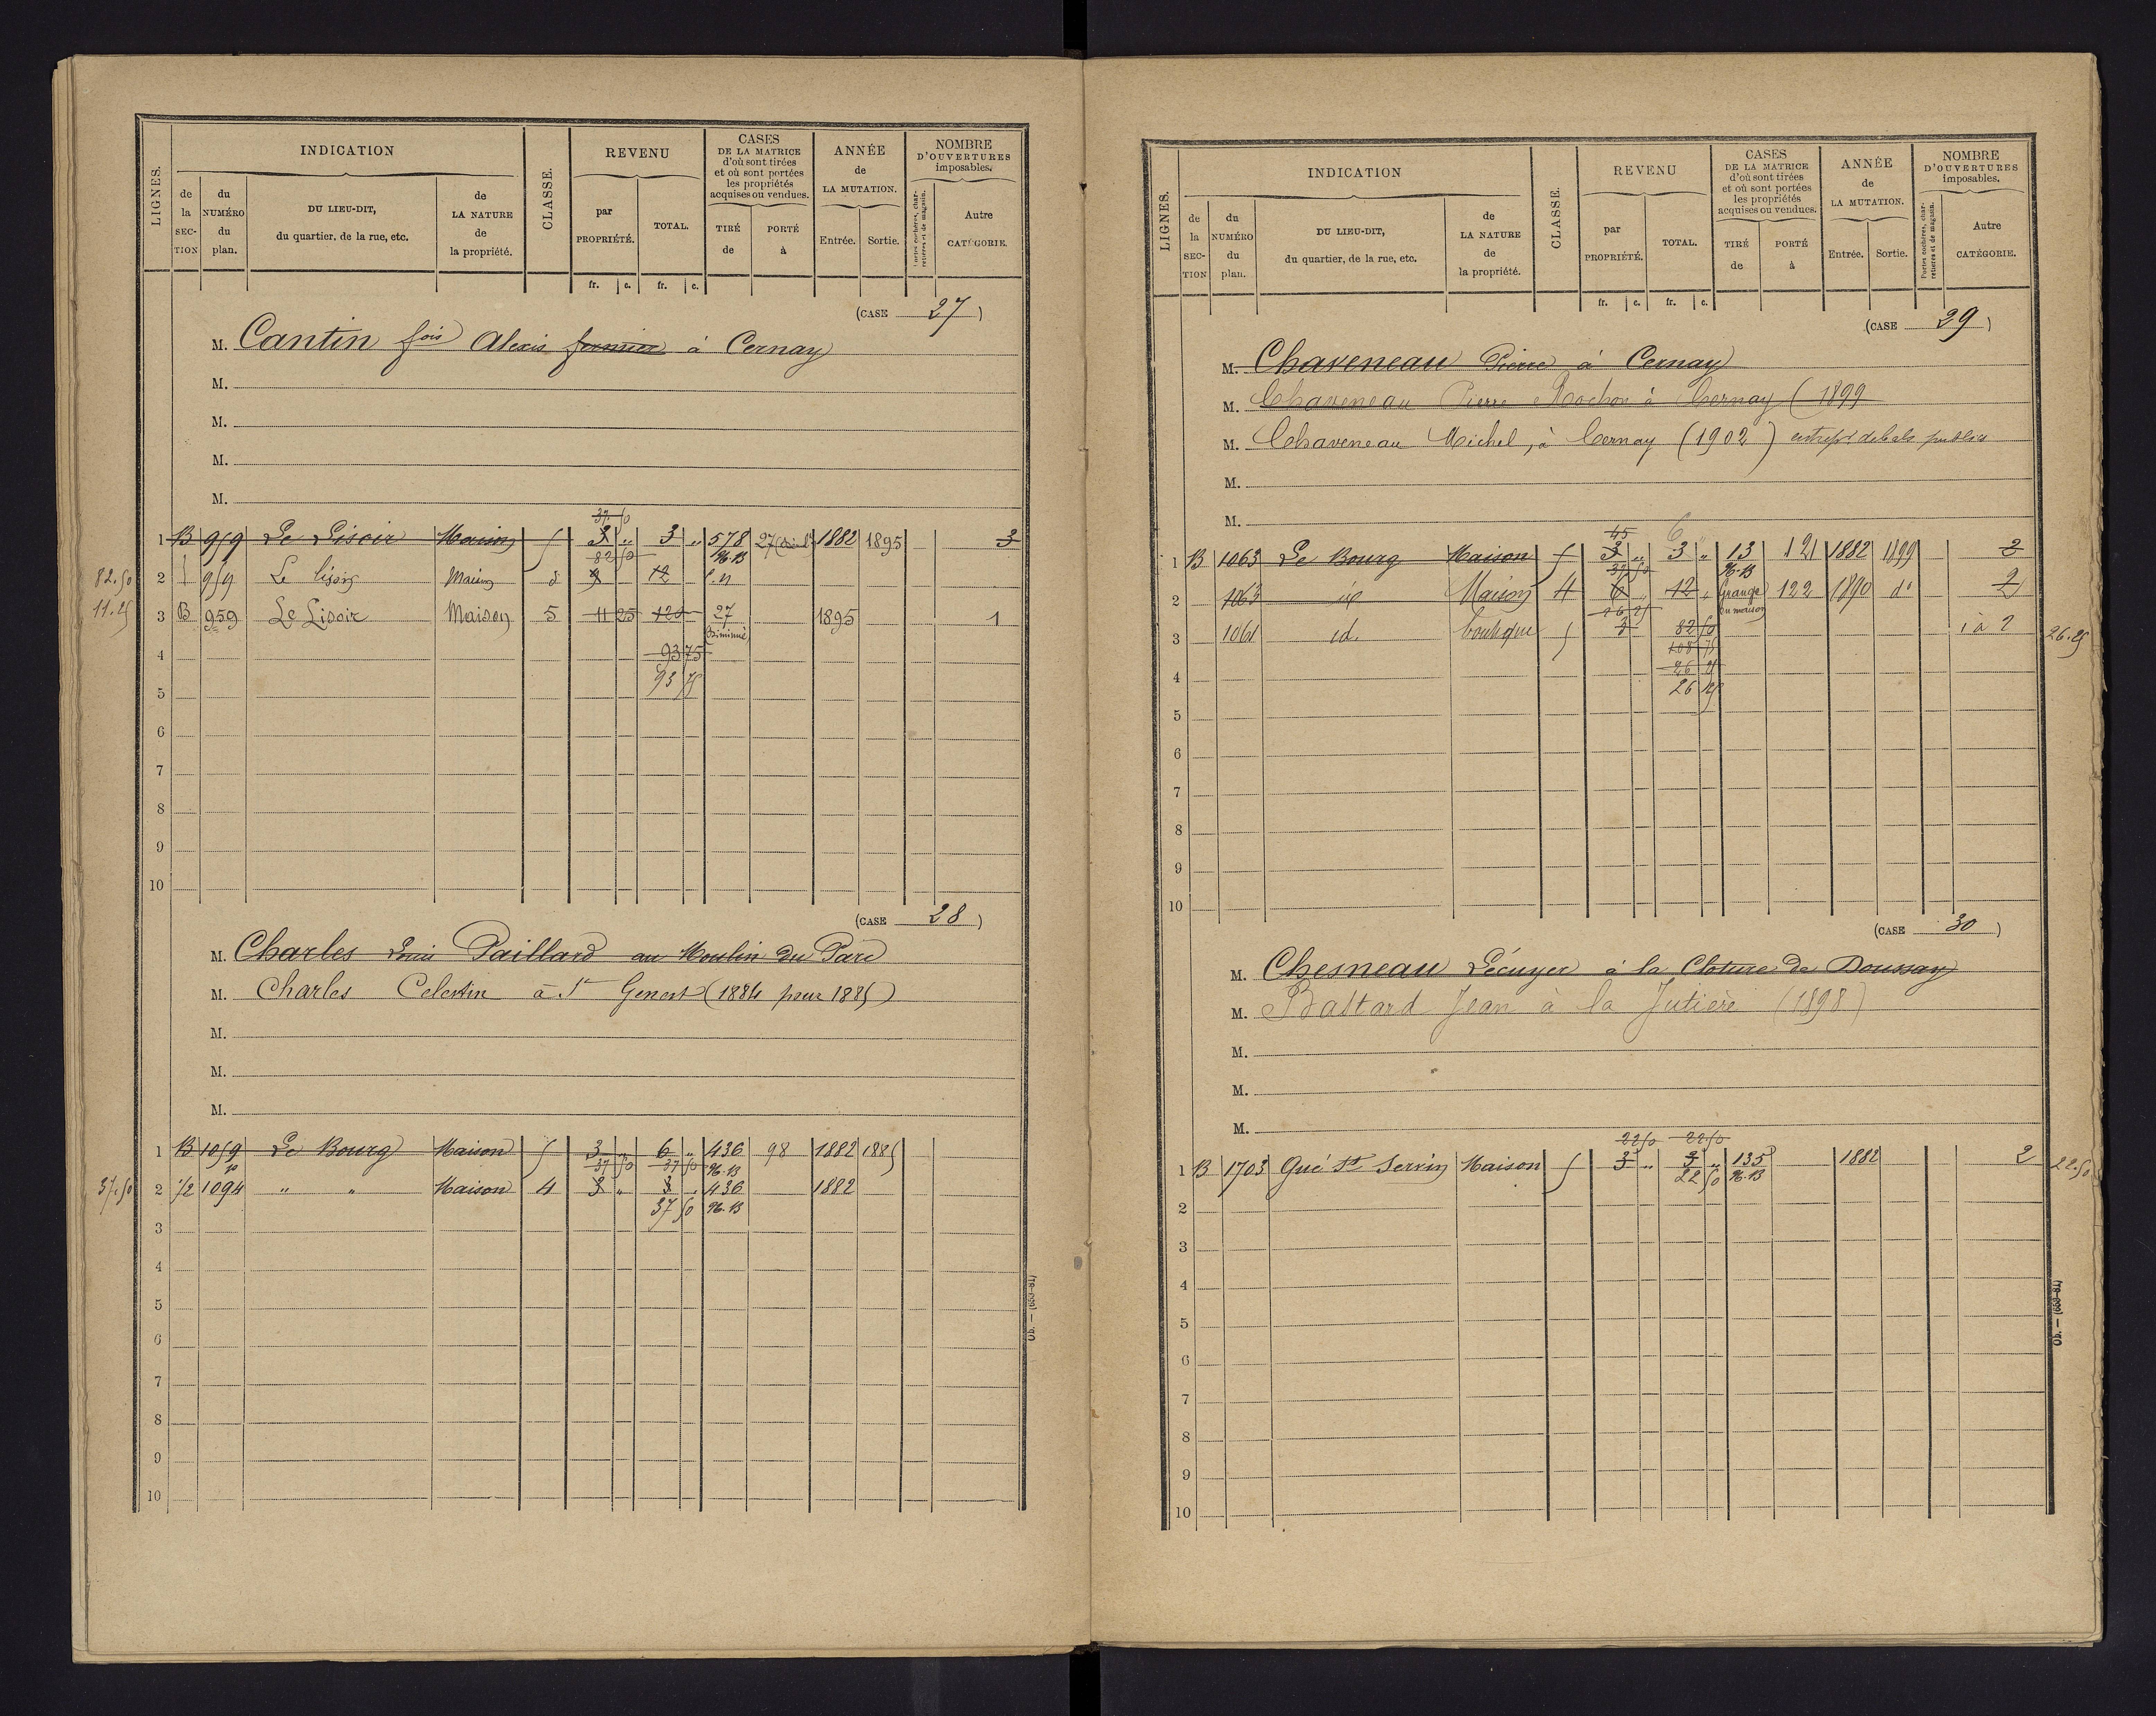 LIGNES.
INDICATION
CLASSE.
REVENU
CASES
DE LA MATRICE
d'où sont tirées
et où sont portées
les propriétés
acquises ou vendues.
ANNÉE
de
LA MUTATION.
NOMBRE
D'OUVERTURES
imposables.
de la SEC-TION
du NUMÉRO du plan.
DU LIEU-DIT,
du quartier, de la rue, etc.
de LA NATURE de la propriété.
par PROPRIÉTÉ.
TOTAL.
TIRÉ de
PORTÉ à
Entrée.
Sortie.
Portes cochères, charretières et de magasin.
Autre CATÉGORIE.
fr. c. fr. c.
(CASE 27)
M. Cantin fois Alexis fermier à Cernay
M.
M.
M.
M.
37 50
1 B 959 Le Lisoir Maison 5 3 „ 3 „ 578 27 1882 1895 3
82 50 96.B
82.50 2 959 Le lisoir Maison 12
11.25 3 B 959 Le Lisoir Maison 5 11 25 120 27 1895 1
Diminué
4 93 75
5 93 75
6
7
8
9
10
(CASE 28)
M. Charles Louis Paillard au Moulin du Parc
M. Charles Celestin à St Genest (1884 pour 1885)
M.
M.
M.
1 B 1059 Le Bourg Maison 5 3 „ 6 „ 436 98 1882 1885
37 50 37 50 96.B
37.50 2 1/2 1094 „ „ Maison 4 3 „ 3 „ 436 1882
37 50 96.B
3
4
5
6
7
8
9
10
Ob. — (653-81)
LIGNES.
INDICATION
CLASSE.
REVENU
CASES
DE LA MATRICE
d'où sont tirées
et où sont portées
les propriétés
acquises ou vendues.
ANNÉE
de
LA MUTATION.
NOMBRE
D'OUVERTURES
imposables.
de la SEC-TION
du NUMÉRO du plan.
DU LIEU-DIT,
du quartier, de la rue, etc.
de LA NATURE de la propriété.
par PROPRIÉTÉ.
TOTAL.
TIRÉ de
PORTÉ à
Entrée.
Sortie.
Portes cochères, charretières et de magasin.
Autre CATÉGORIE.
fr. c. fr. c.
(CASE 29)
M. Chaveneau Pierre à Cernay
M. Chaveneau Pierre Rochon à Cernay (1899
M. Chaveneau Michel, à Cernay (1902) entrepr de bals publics
M.
M.
45 6
1 B 1063 Le Bourg Maison 5 3 „ 3 „ 13 121 1882 1899 2
37 50 96.B
2 1063 id Maison 4 6 „ 12 „ Grange 122 1890 do 2
26 25 en maison
3 1061 id. boutique 5 3 82 50 1 à 2 26.25
108 75
4 26 25
26 25
5
6
7
8
9
10
(CASE 30)
M. Chesneau Lécuyer à la Cloture de Doussay
M. Bastard Jean à la Jutière (1898)
M.
M.
M.
22 50 22 50
1 B 1703 Gué St Servin Maison 5 3 „ 3 „ 135 1882 2 22.50
22 50 96.B
2
3
4
5
6
7
8
9
10
Ob. — (653-81)